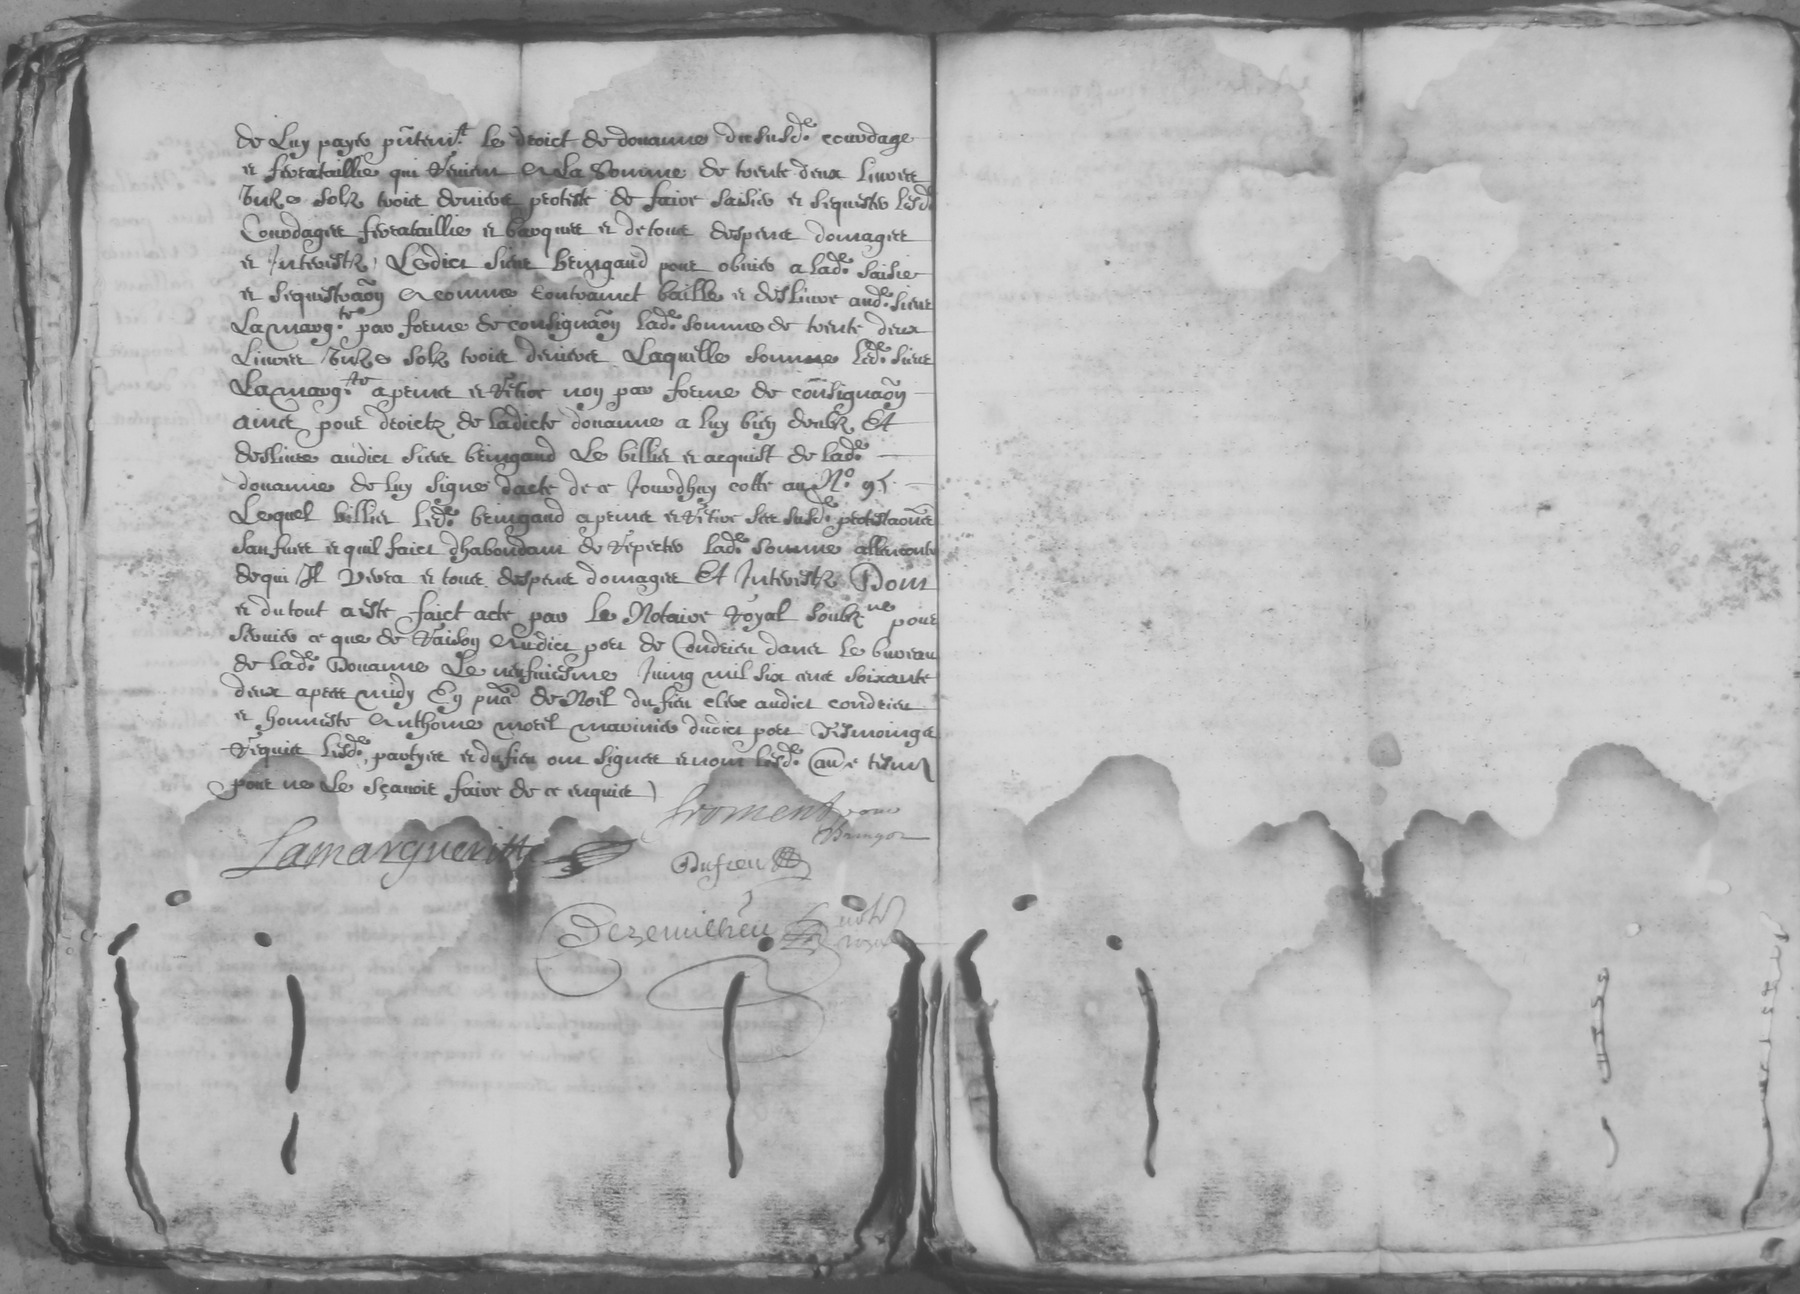 de luy payer pñtem.t le droict de douanne du susd.e courdage
et ferrataillie qui revient A la Somme de trente deux livres
unze solz trois deniers proteste de faire saisir et sequester lesd.
Courdages ferrataillie et barques et de tous despens domages
et Interestz, Ledict sieur bringaud pour obvier a lad.e saisie
et sequestraõn et comme contrainct baille et deslivre aud.e sieur
Lamarg.te par forme de consignaõn lad.e somme de trente deux
Livres unze solz trois deniers Laquelle somme led.e sieur
Lamarg.te a prince et retire non par forme de consignaõn
ains pour droictz de ladicte douanne a luy bien deubz Et
deslivre audict sieur bringaud Le billiet et acquist de lad.e
douanne de luy signe datte de ce Jourdhuy cotte au N.o 95
Lequel billiet led.e bringaud a prince et retire ses susd.e protestaõns
saufves et quil faict dhabondant de repetter lad.e somme allencontre
de qui Il verra et tous despens domages Et Interestz Dont
et du tout a este faict acte par le Notaire Royal soubz.ne pour
servir ce que de raison Audict port de Condrieu dans le bureau
de lad.e Douanne Le neufviesme Juing mil six cens soixante
deux apres midy En pñce de Noel dufieu clerc audict condrieu
et honneste Anthoine morel marinier dudict port tesmoings
requis lesd.e partyes et dufieu ont signes et non lesd.e tesm
pour ne le sçavoir faire de ce enquis
froment pour
Bringor
Lamargueritte
Dufieu
Dezemillieu not.
royal